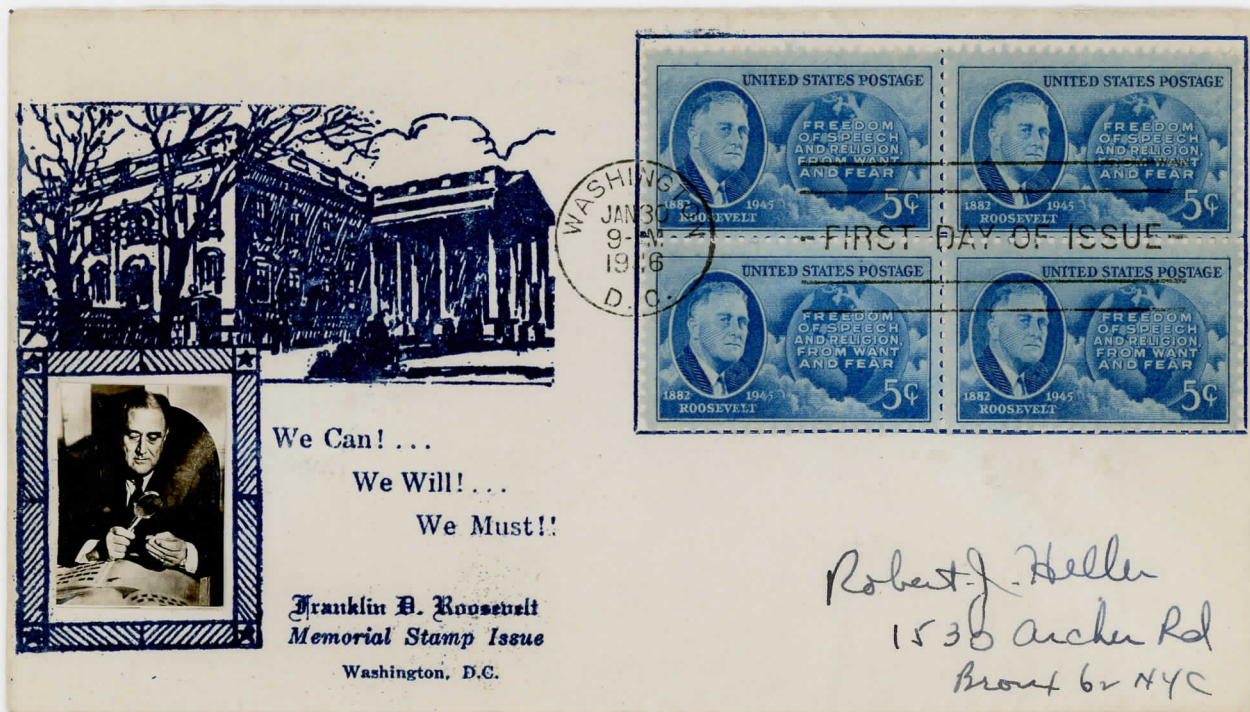 UNITED STATES POSTAGE
FREEDOM
OF SPEECH
AND RELIGION,
FROM WANT
AND FEAR
1882 1945
ROOSEVELT
5¢
UNITED STATES POSTAGE
FREEDOM
OF SPEECH
AND RELIGION,
FROM WANT
AND FEAR
1882 1945
ROOSEVELT
5¢
WASHINGTON
JAN 30
9-AM
1946
D. C.
-FIRST DAY OF ISSUE-
UNITED STATES POSTAGE
FREEDOM
OF SPEECH
AND RELIGION,
FROM WANT
AND FEAR
1882 1945
ROOSEVELT
5¢
UNITED STATES POSTAGE
FREEDOM
OF SPEECH
AND RELIGION,
FROM WANT
AND FEAR
1882 1945
ROOSEVELT
5¢
We Can! ...
We Will! ...
We Must!!
Franklin D. Roosevelt
Memorial Stamp Issue
Washington, D.C.
Robert J. Heller
1530 Archer Rd
Bronx 62 NYC